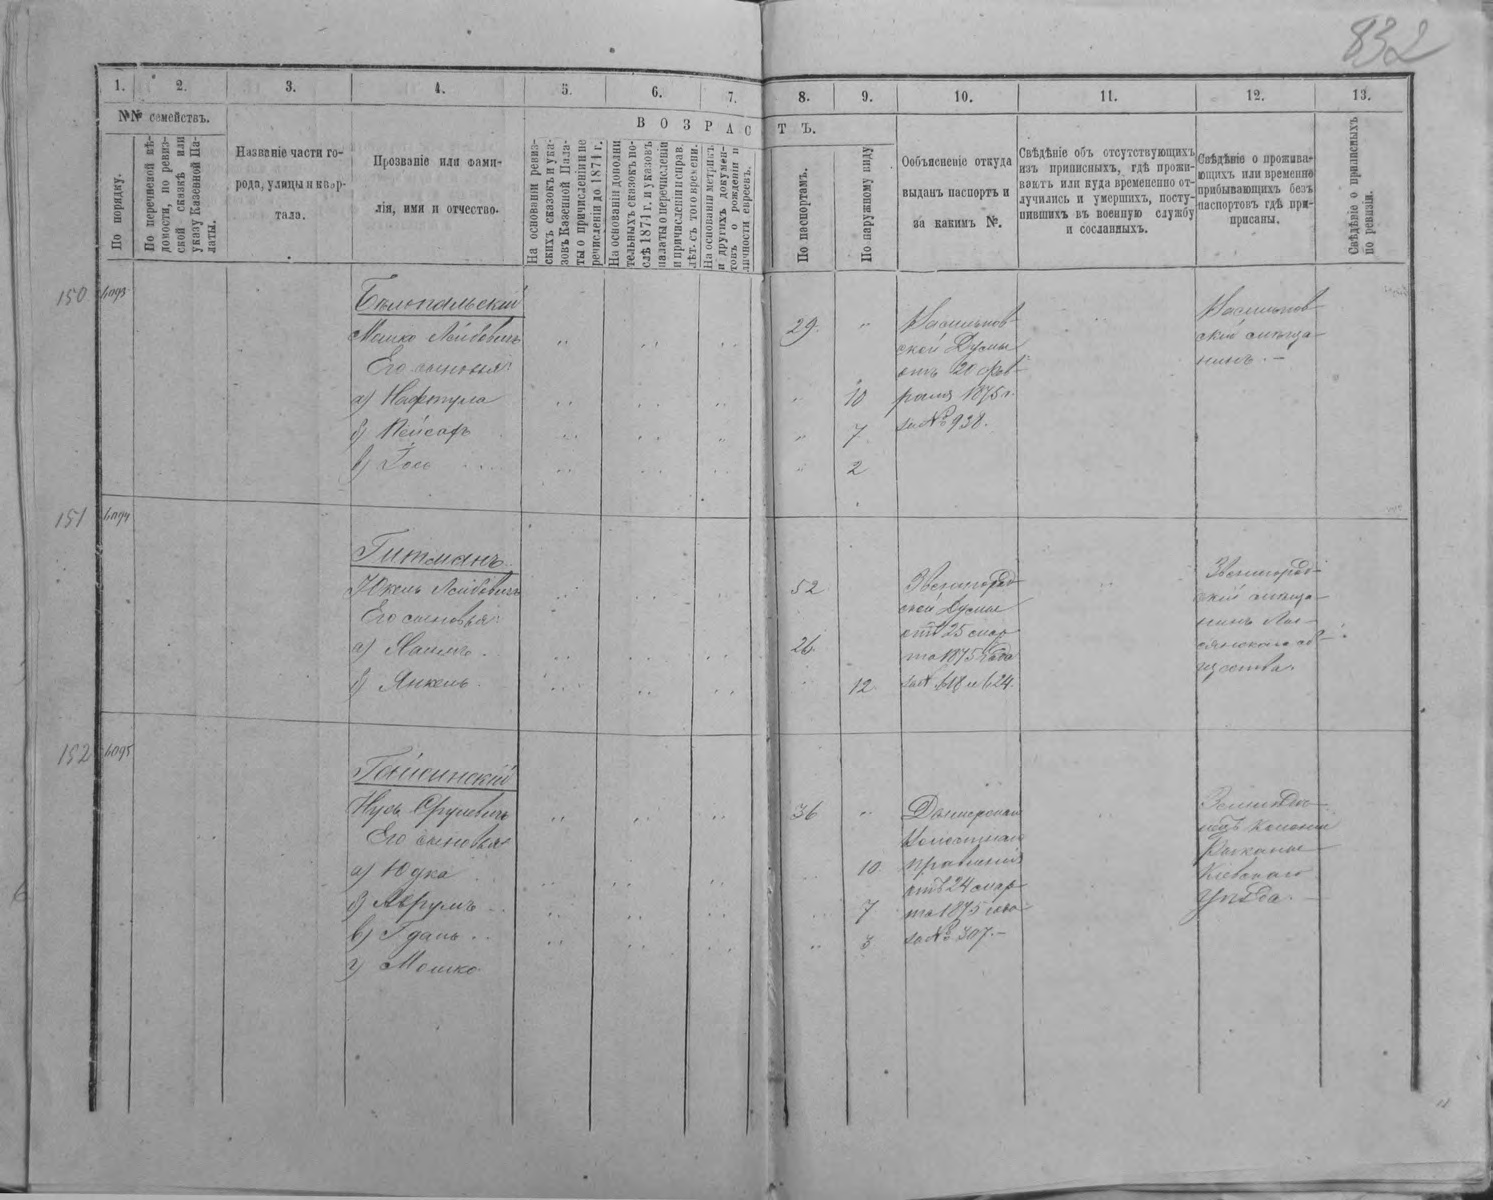 832
1. 2. 3. 4. 5. 6. 7. 8. 9. 10. 11. 12. 13.
№№ семействъ.
По порядку.
По перечневой вѣ-
домости, по ревиз-
ской сказкѣ или
указу Казенной Па-
латы.
Названіе части го-
рода, улицы и квар-
тала.
Прозваніе или фами-
лія, имя и отчество.
ВОЗРАСТЪ.
На основаніи ревиз-
скихъ сказокъ и ука-
зовъ Казенной Пала-
ты о причисленіи и пе
речисленіи до 1874 г.
На основаніи дополни
тельныхъ сказокъ по-
слѣ 1874 г. и указовъ
палаты о перечисленіи
и причисленіи и справ.
лѣт. съ того времени.
На основаніи метрикъ
и другихъ докумен-
товъ о рожденіи и
личности евреевъ.
По паспортамъ.
По наружному виду
Оообъясненіе откуда
выданъ паспортъ и
за какимъ №.
Свѣдѣніе объ отсутствующихъ
изъ приписныхъ, гдѣ прожи-
ваютъ или куда временено от-
лучились и умершихъ, посту-
пившихъ въ военную службу
и сосланныхъ.
Свѣдѣніе о прожива-
ющихъ или временно
прибывающихъ безъ
паспортовъ гдѣ при-
писаны.
Свѣдѣніе о приписныхъ
по ревизіи.
150 6093
Бѣлопольскій
Мошко Лейбовичъ 29
Его сыновья:
а) Нафтула 10
б) Пейсахъ 7
в) Гось 2
Васильков-
ской Думы
отъ 20 фев-
раля 1875 г.
за № 938.
Васильков-
скій мѣща-
нинъ.
151 6094
Гитманъ
Юкель Лейбовичъ 52
Его сыновья:
а) Хаимъ 26
б) Янкель 12
Звенигород-
ской Думы
отъ 25 мар-
та 1875 года
за № 618 и 624.
Звенигород-
скій мѣща-
нинъ Лы-
сянскаго об-
щества.
152 6095
Гайсинскій
Нусь Сруlевичъ 36
Его сыновья
а) Юдка 10
б) Аврумъ 7
в) Гдаль 3
г) Мошко
Волостнаго
Правленія
отъ 24 мар-
та 1875 года
за № 307.
Земледѣ-
лецъ колоніи
Кіевскаго
Уѣзда.